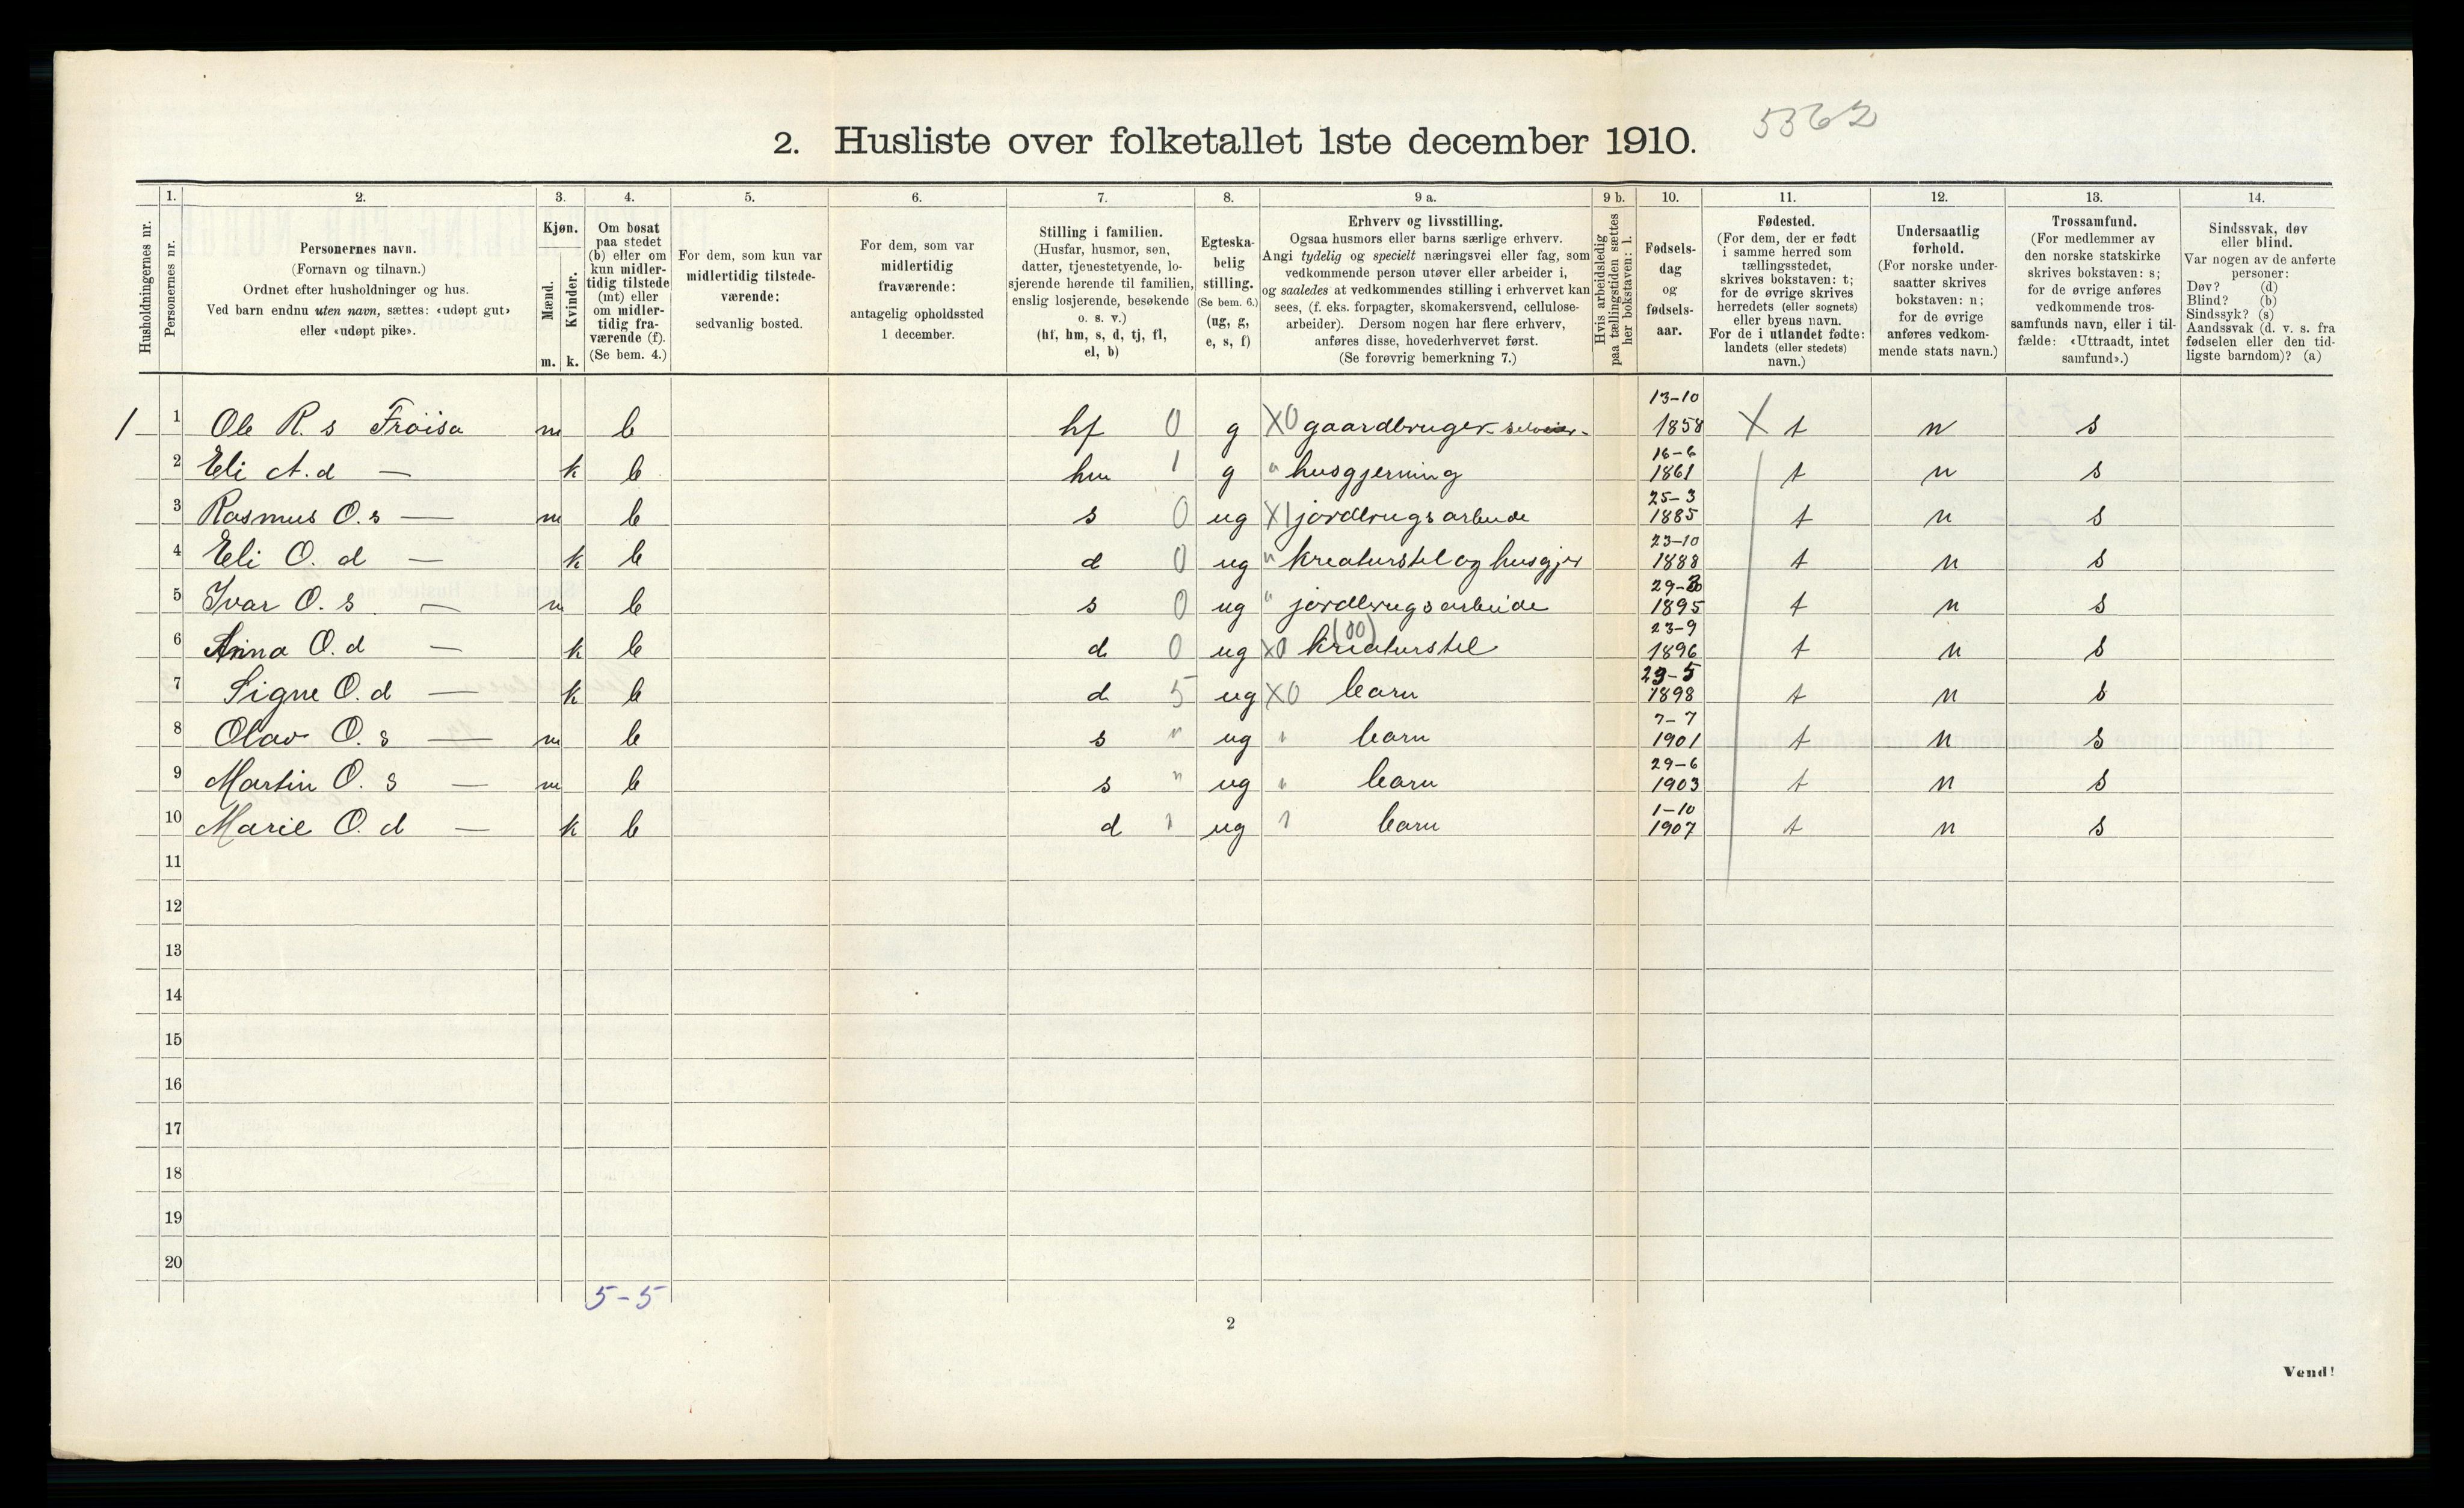 5362
2. Husliste over folketallet 1ste december 1910.
Husholdningernes nr.
1.
Personernes nr.
2.
Personernes navn.
(Fornavn og tilnavn.)
Ordnet efter husholdninger og hus.
Ved barn endnu uten navn, sættes: «udøpt gut»
eller «udøpt pike».
3.
Kjøn.
Mænd.
m.
Kvinder.
k.
4.
Om bosat
paa stedet
(b) eller om
kun midler-
tidig tilstede
(mt) eller
om midler-
tidig fra-
værende (f).
(Se bem. 4.)
5.
For dem, som kun var
midlertidig tilstede-
værende:
sedvanlig bosted.
6.
For dem, som var
midlertidig
fraværende:
antagelig opholdssted
1 december.
7.
Stilling i familien.
(Husfar, husmor, søn,
datter, tjenestetyende, lo-
sjerende hørende til familien,
enslig losjerende, besøkende
o. s. v.)
(hf, hm, s, d, tj, fl,
el, b)
8.
Egteska-
belig
stilling.
(Se bem. 6.)
(ug, g,
e, s, f)
9 a.
Erhverv og livsstilling.
Ogsaa husmors eller barns særlige erhverv.
Angi tydelig og specielt næringsvei eller fag, som
vedkommende person utøver eller arbeider i,
og saaledes at vedkommendes stilling i erhvervet kan
sees, (f. eks. forpagter, skomakersvend, cellulose-
arbeider). Dersom nogen har flere erhverv,
anføres disse, hovederhvervet først.
(Se forøvrig bemerkning 7.)
9 b.
Hvis arbeidsledig
paa tællingstiden sættes
her bokstaven: l.
10.
Fødsels-
dag
og
fødsels-
aar.
11.
Fødested.
(For dem, der er født
i samme herred som
tællingsstedet,
skrives bokstaven: t;
for de øvrige skrives
herredets (eller sognets)
eller byens navn.
For de i utlandet fødte:
landets (eller stedets)
navn.)
12.
Undersaatlig
forhold.
(For norske under-
saatter skrives
bokstaven: n;
for de øvrige
anføres vedkom-
mende stats navn.)
13.
Trossamfund.
(For medlemmer av
den norske statskirke
skrives bokstaven: s;
for de øvrige anføres
vedkommende tros-
samfunds navn, eller i til-
fælde: «Uttraadt, intet
samfund».)
14.
Sindssvak, døv
eller blind.
Var nogen av de anførte
personer:
Døv? (d)
Blind? (b)
Sindssyk? (s)
Aandssvak (d. v. s. fra
fødselen eller den tid-
ligste barndom)? (a)
1 1 Ole R. s Frøisa m b hf 0 g X0 gaardbruger - selveier - 13-10 1858 X t n s
2 Eli A. d — k b hm 1 g " husgjerning 16-6 1861 t n s
3 Rasmus O. s — m b s 0 ug X1 jordbrugsarbeide 25-3 1885 t n s
4 Eli O. d — k b d 0 ug " kreaturstel og husgjer 23-10 1888 t n s
5 Ivar O. s — m b s 0 ug " jordbrugsarbeide 1895 t n s
6 Anna O. d — k b d 0 ug X0 (00) kreaturstel 23-9 1896 t n s
7 Signe O. d — k b d 5 ug X0 barn 29-5 1898 t n s
8 Olav O. s — m b s " ug " barn 7-7 1901 t n s
9 Martin O. s — m b s " ug " barn 29-6 1903 t n s
10 Marie O. d — k b d " ug " barn 1-10 1907 t n s
11
12
13
14
15
16
17
18
19
20
5-5
2
Vend!